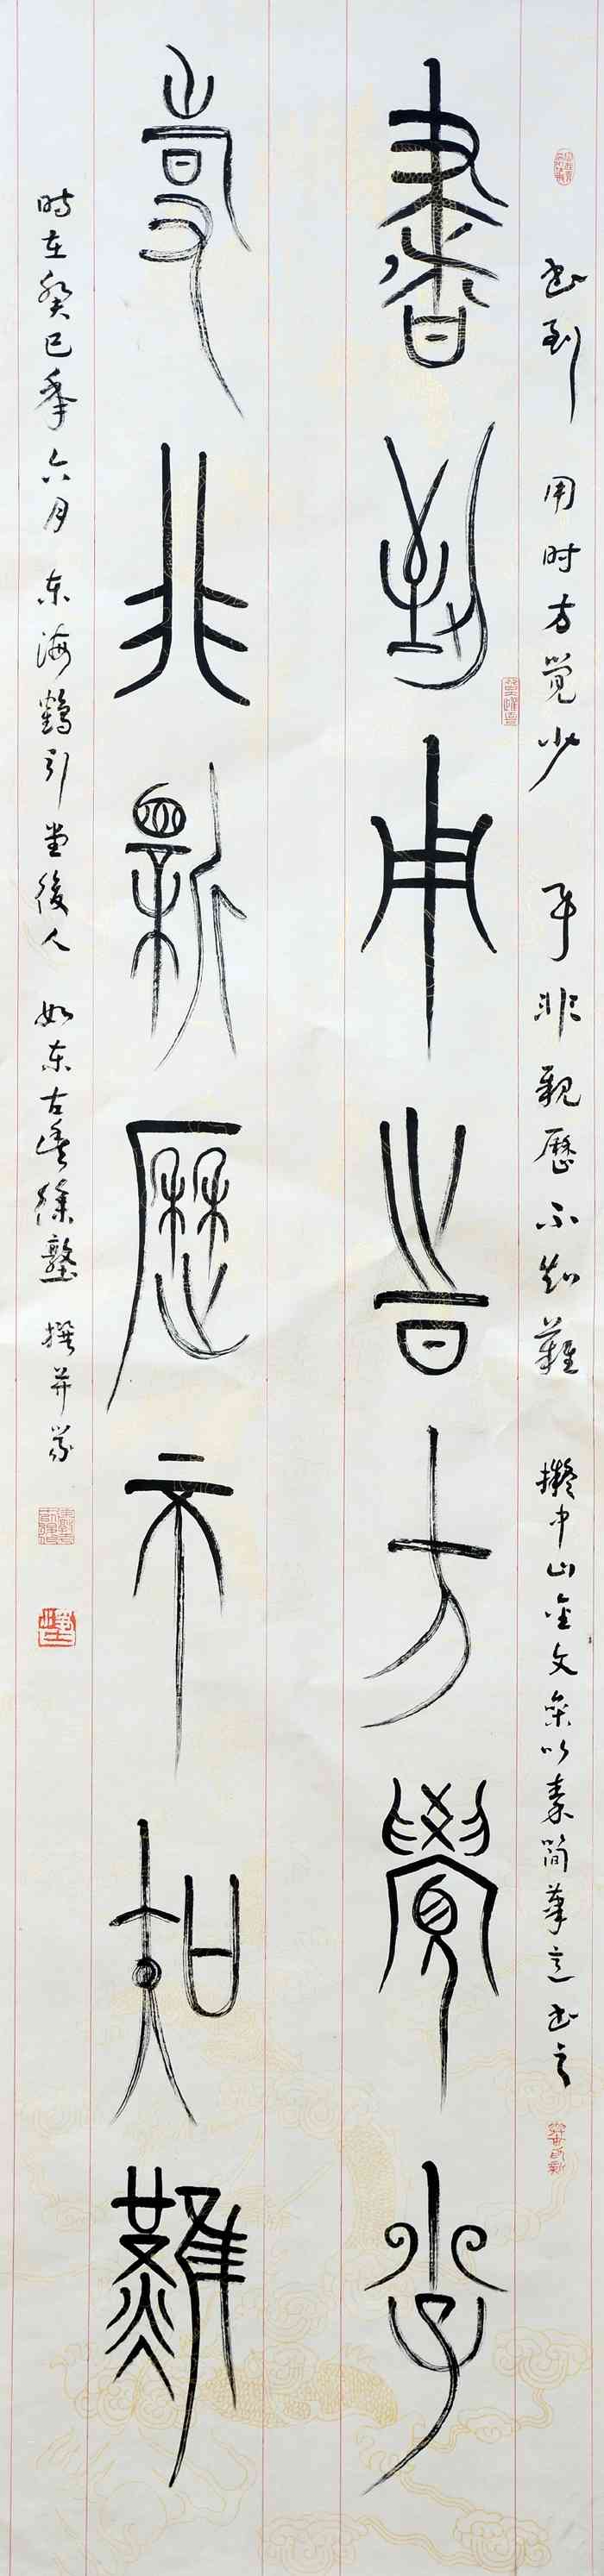 书到 用时方觉少 事非親歷不知難 擬中山金文参以秦简筆意书之
書到用時方覺少
事非親歷不知難
时在癸巳年六月 东海鶴引堂後人 如东古 徐 撰并篆